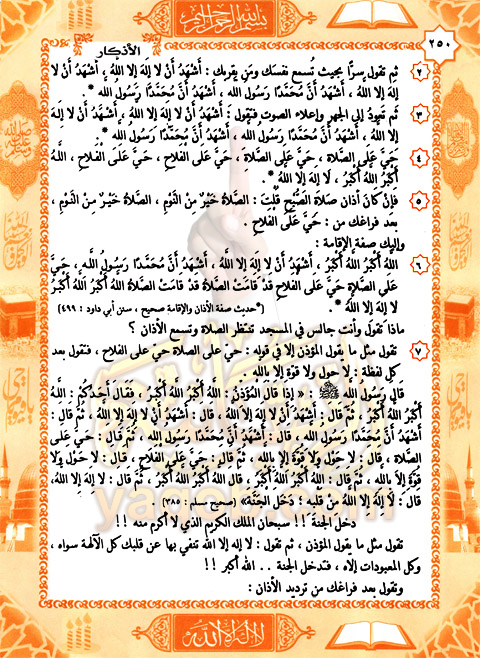 بسم الله الرحمن الرحيم
٢٥٠
الأذكار
٢ ثم تقول سِرًّا بحيث تُسمع نفسَك ومَن يقربك : أَشْهَدُ أَنْ لا إِلَهَ إِلا اللهُ ، أَشْهَدُ أَنْ لا
إِلَهَ إِلا اللهُ ، أَشْهَدُ أَنَّ مُحَمَّدًا رَسُولُ الله ، أَشْهَدُ أَنَّ مُحَمَّدًا رَسُولُ الله *.
٣ ثم تَعودُ إلى الجهر وإعلاء الصوت فتقول : أَشْهَدُ أَنْ لا إِلَهَ إِلا اللهُ ، أَشْهَدُ أَنْ لا إِلَهَ
إِلا اللهُ ، أَشْهَدُ أَنَّ مُحَمَّدًا رَسُولُ الله ، أَشْهَدُ أَنَّ مُحَمَّدًا رَسُولُ الله *.
٤ حَيَّ عَلَى الصَّلاة ، حَيَّ عَلَى الصَّلاة ، حَيَّ عَلَى الفَلاح ، حَيَّ عَلَى الفَلاح ، اللهُ
أَكْبَرُ اللهُ أَكْبَرُ ، لا إِلَهَ إِلا اللهُ *.
٥ فَإِنْ كَانَ أذان صَلاةَ الصُّبْح قُلْتَ : الصَّلاةُ خَيْرٌ مِنَ النَّوْمِ ، الصَّلاةُ خَيْرٌ مِنَ النَّوْمِ ،
بعد فراغك من : حَيَّ عَلَى الفَلاحِ .
وإليك صفة الإقامة :
٦ اللهُ أَكْبَرُ اللهُ أَكْبَرُ ، أَشْهَدُ أَنْ لا إِلَهَ إِلا اللهُ ، أَشْهَدُ أَنَّ مُحَمَّدًا رَسُولُ اللهِ ، حَيَّ
عَلَى الصَّلاةِ حَيَّ عَلَى الفَلاحِ قَدْ قَامَتْ الصَّلاةُ قَدْ قَامَتْ الصَّلاةُ اللهُ أَكْبَرُ اللهُ أَكْبَرُ
لا إِلَهَ إِلا اللهُ *. (*حديث صفة الأذان والإقامة صحيح ، سنن أبي داود : ٤٩٩)
ماذا تقول وأنت جالس في المسجد تنتظر الصلاة وتسمع الأذان ؟
٧ تقول مثل ما يقول المؤذن إلا في قوله : حيَّ على الصلاة حي على الفلاح ، فتقول بعد
كل لفظة : لا حول ولا قوة إلا بالله
قال رسول الله ﷺ : « إذا قالَ المُؤَذِّنُ : اللهُ أَكْبَرُ اللهُ أَكْبَرُ ، فَقَالَ أَحَدُكُمْ : اللهُ
أَكْبَرُ اللهُ أَكْبَرُ ، ثُمَّ قَالَ : أَشْهَدُ أَنْ لا إِلَهَ إِلا اللهُ ، قَالَ : أَشْهَدُ أَنْ لا إِلَهَ إِلا اللهُ ، ثُمَّ قَالَ :
أَشْهَدُ أَنَّ مُحَمَّدًا رَسُولُ الله ، قَالَ : أَشْهَدُ أَنَّ مُحَمَّدًا رَسُولُ الله ، ثُمَّ قَالَ : حَيَّ عَلَى
الصَّلاة ، قَالَ : لا حَوْلَ وَلا قُوَّةَ إِلا بِالله ، ثُمَّ قَالَ : حَيَّ عَلَى الفَلاح ، قَالَ : لا حَوْلَ وَلا
قُوَّةَ إِلا بِالله ، ثُمَّ قَالَ : اللهُ أَكْبَرُ اللهُ أَكْبَرُ ، قَالَ اللهُ أَكْبَرُ اللهُ أَكْبَرُ ، ثُمَّ قَالَ : لا إِلَهَ إِلا اللهُ ،
قَالَ : لا إِلَهَ إِلا اللهُ مِنْ قَلْبِه ؛ دَخَلَ الجَنَّةَ» (صحيح مسلم : ٣٨٥)
دخل الجنة !! سبحان الملك الكريم الذي لا أكرم منه !!
تقول مثل ما يقول المؤذن ، ثم تقول : لا إله إلا الله تنفي بها عن قلبك كل الآلهة سواه ،
وكل المعبودات إلاه ، فتدخل الجنة .. الله أكبر !!
وتقول بعد فراغك من ترديد الأذان :
لا إله إلا الله